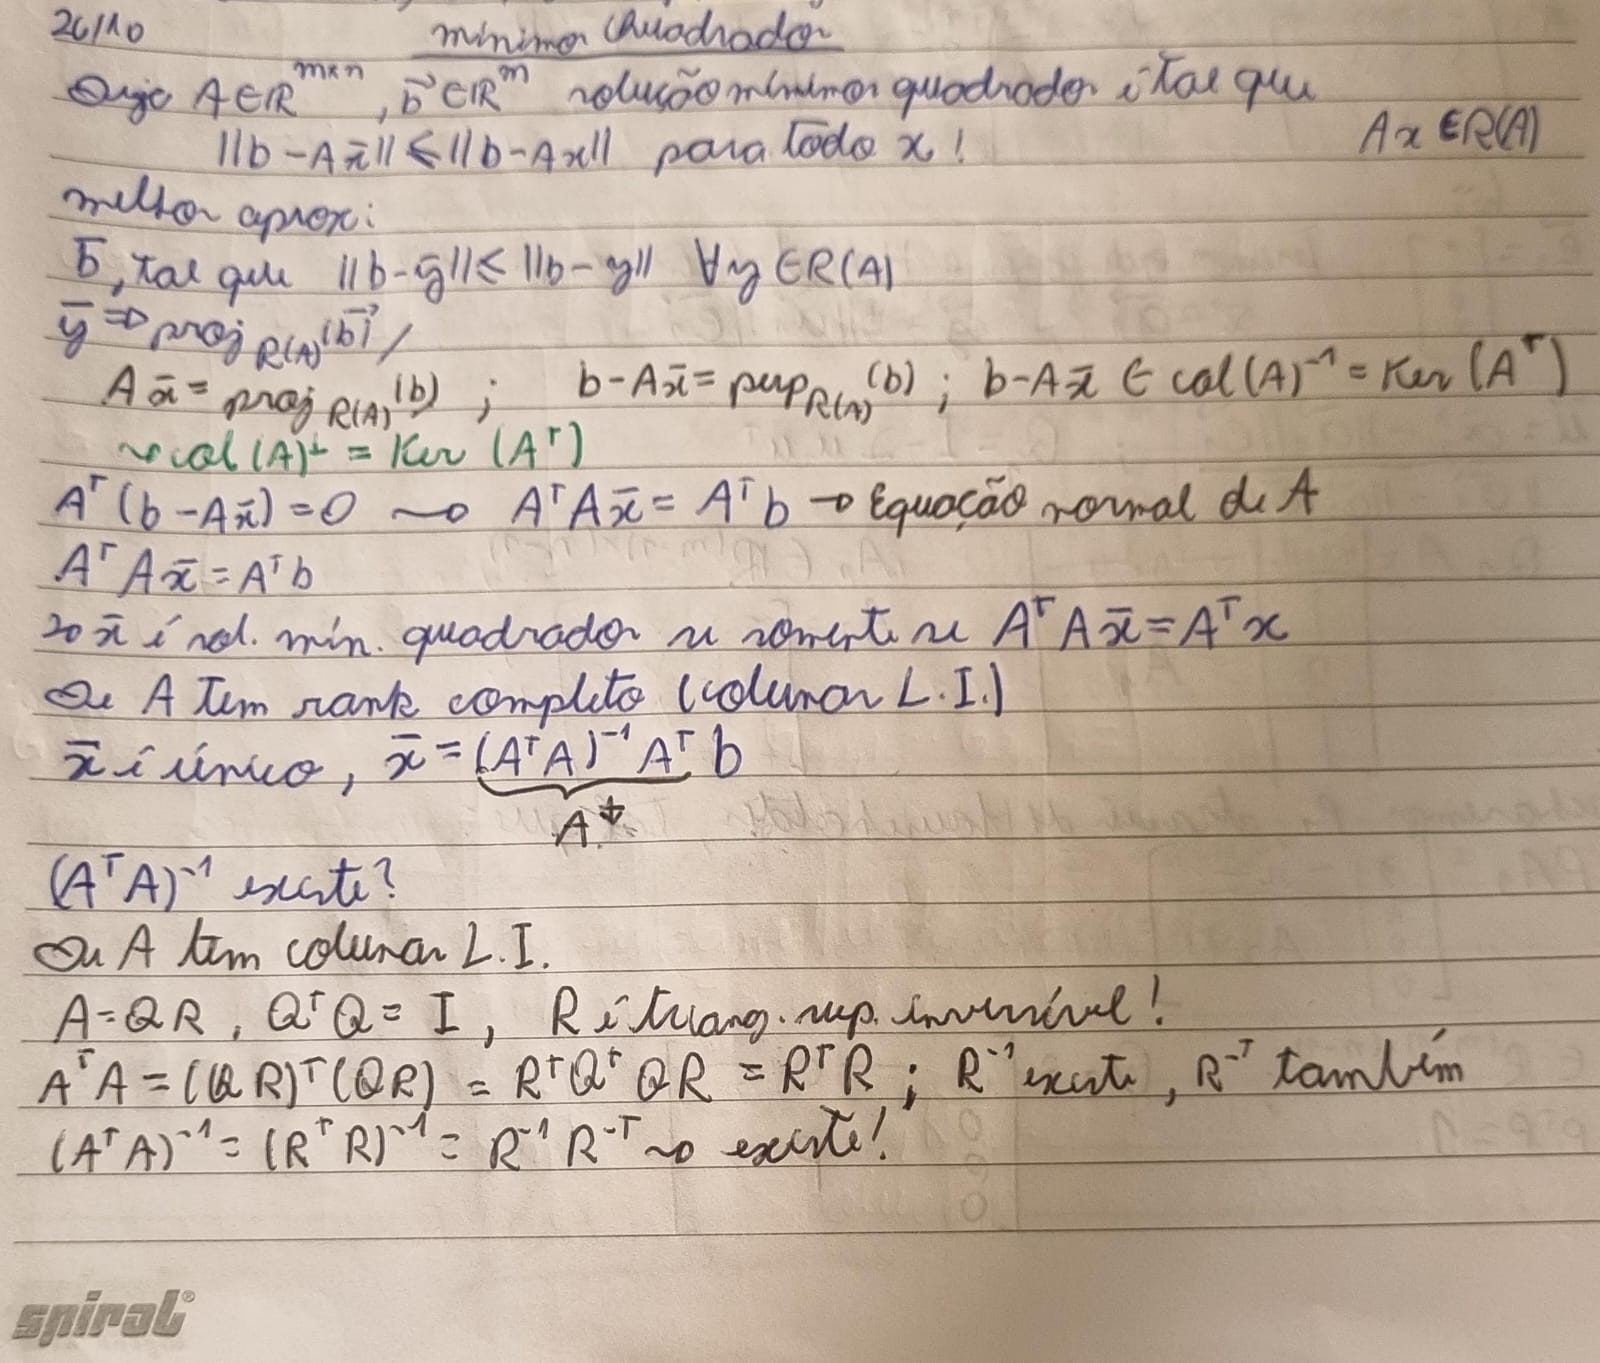 26/10 mínimos Quadrados
Seja A∈ℝᵐˣⁿ, b⃗∈ℝᵐ solução mínimos quadrados é tal que
||b-Ax̄|| ≤ ||b-Ax|| para todo x! Ax∈R(A)
melhor aprox:
b̄, tal que ||b-ȳ|| ≤ ||b-y|| ∀y∈R(A)
ȳ ⇒ proj_R(A)(b⃗)/
Ax̄ = proj_R(A)(b) ; b-Ax̄ = perp_R(A)(b) ; b-Ax̄ ∈ col(A)⁻¹ = Ker(Aᵀ)
~o col(A)⊥ = Ker(Aᵀ)
Aᵀ(b-Ax̄)=0 ~o AᵀAx̄ = Aᵀb → Equação normal de A
AᵀAx̄ = Aᵀb
x̄ é sol. mín. quadrados se somente se AᵀAx̄ = Aᵀx
Se A tem rank completo (colunas L.I.)
x̄ é único, x̄ = (AᵀA)⁻¹Aᵀ b
A⁺
(AᵀA)⁻¹ existe?
Se A tem colunas L.I.
A=QR, QᵀQ = I, R é triang. sup. inversível!
AᵀA = (QR)ᵀ(QR) = RᵀQᵀQR = RᵀR ; R⁻¹ existe, R⁻ᵀ também
(AᵀA)⁻¹ = (RᵀR)⁻¹ = R⁻¹R⁻ᵀ ~o existe!
spiral®